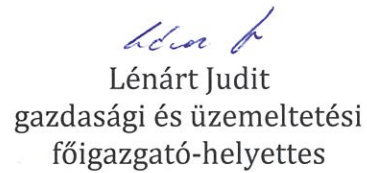 Lénárt Judit
gazdasági és üzemeltetési
főigazgató-helyettes